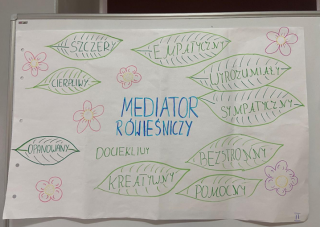 SZCZERY
EMPATYCZNY
CIERPLIWY
WYROZUMIAŁY
SYMPATYCZNY
MEDIATOR
RÓWIEŚNICZY
OPANOWANY
DOCIEKLIWY
BEZSTRONNY
KREATYWNY
POMOCNY